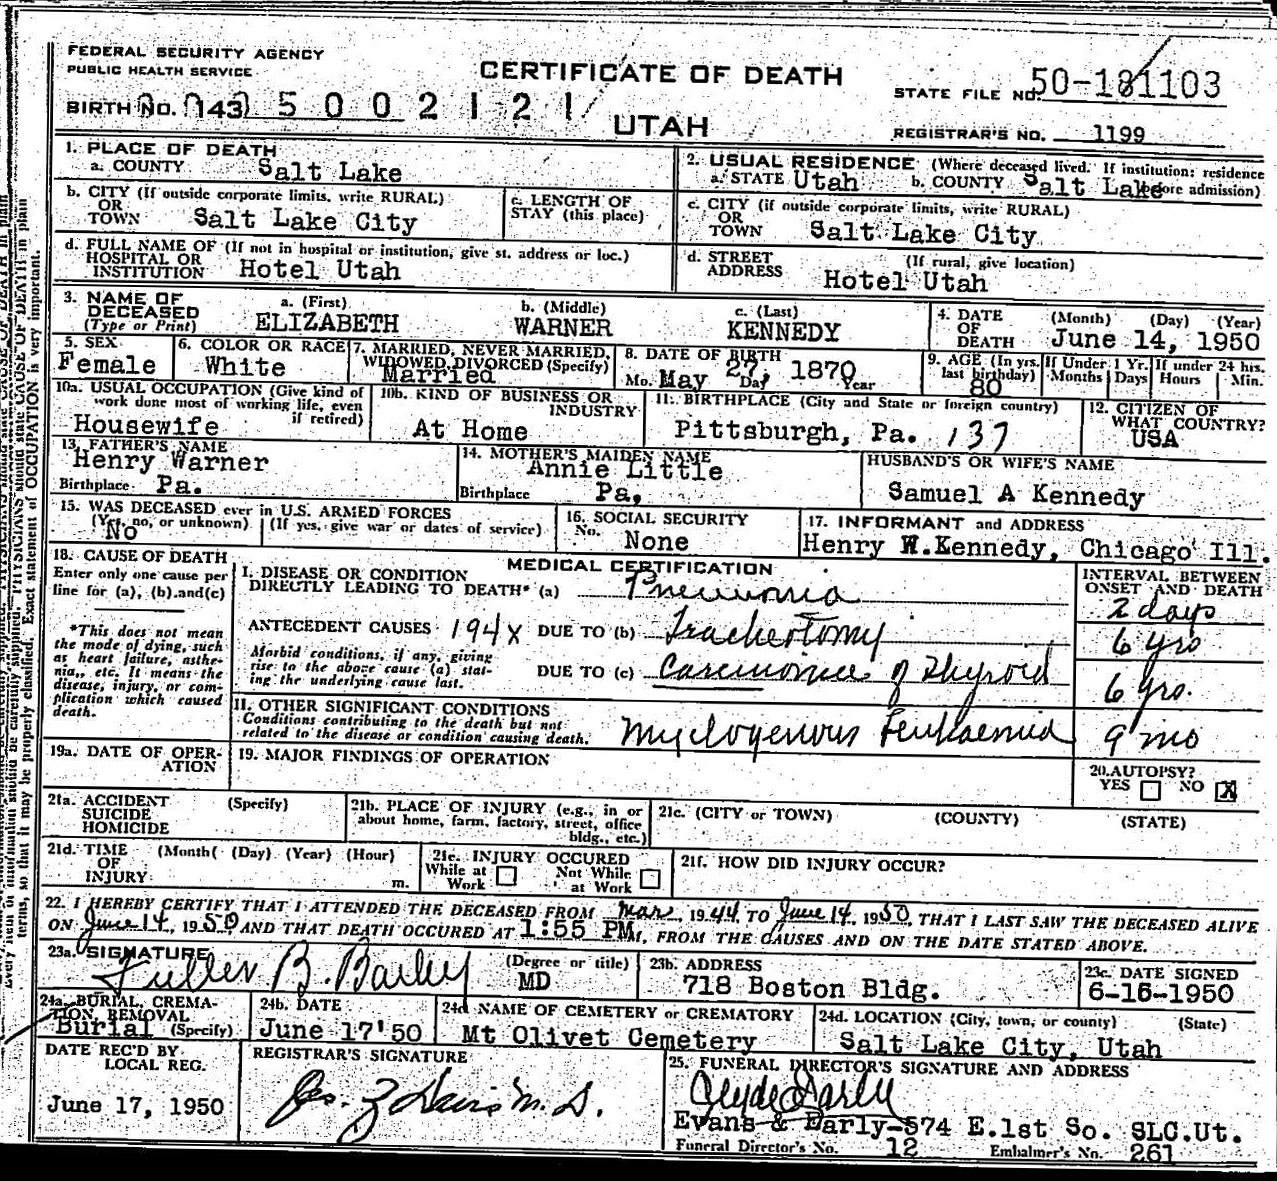 FEDERAL SECURITY AGENCY
PUBLIC HEALTH SERVICE
CERTIFICATE OF DEATH
STATE FILE NO. 50-181103
BIRTH NO. 143 5 0 0 2 1 2 1
UTAH
REGISTRAR'S NO. 1199
1. PLACE OF DEATH
a. COUNTY Salt Lake
2. USUAL RESIDENCE (Where deceased lived. If institution: residence before admission)
a. STATE Utah b. COUNTY Salt Lake
b. CITY (If outside corporate limits, write RURAL)
OR
TOWN Salt Lake City
c. LENGTH OF
STAY (this place)
c. CITY (if outside corporate limits, write RURAL)
OR
TOWN Salt Lake City
d. FULL NAME OF (If not in hospital or institution, give st. address or loc.)
HOSPITAL OR
INSTITUTION Hotel Utah
d. STREET (If rural, give location)
ADDRESS Hotel Utah
3. NAME OF
DECEASED
(Type or Print)
a. (First) ELIZABETH
b. (Middle) WARNER
c. (Last) KENNEDY
4. DATE (Month) (Day) (Year)
OF
DEATH June 14, 1950
5. SEX
Female
6. COLOR OR RACE
White
7. MARRIED, NEVER MARRIED,
WIDOWED, DIVORCED (Specify)
Married
8. DATE OF BIRTH
Mo. May 27, Day 1870 Year
9. AGE (In yrs.
last birthday)
80
If Under 1 Yr.
Months Days
If under 24 hrs.
Hours Min.
10a. USUAL OCCUPATION (Give kind of
work done most of working life, even
if retired)
Housewife
10b. KIND OF BUSINESS OR
INDUSTRY
At Home
11. BIRTHPLACE (City and State or foreign country)
Pittsburgh, Pa. 137
12. CITIZEN OF
WHAT COUNTRY?
USA
13. FATHER'S NAME
Henry Warner
Birthplace Pa.
14. MOTHER'S MAIDEN NAME
Annie Little
Birthplace Pa,
HUSBAND'S OR WIFE'S NAME
Samuel A Kennedy
15. WAS DECEASED ever in U.S. ARMED FORCES
(Yes, no, or unknown) (If yes, give war or dates of service)
No
16. SOCIAL SECURITY
No. None
17. INFORMANT and ADDRESS
Henry W.Kennedy, Chicago Ill.
18. CAUSE OF DEATH
Enter only one cause per
line for (a), (b).and(c)
*This does not mean
the mode of dying, such
as heart failure, asthe-
nia,, etc. It means the
disease, injury, or com-
plication which caused
death.
MEDICAL CERTIFICATION
I. DISEASE OR CONDITION
DIRECTLY LEADING TO DEATH* (a) Pneumonia
ANTECEDENT CAUSES 194x DUE TO (b) Tracheotomy
Morbid conditions, if any, giving
rise to the above cause (a) stat-
ing the underlying cause last.
DUE TO (c) Carcinoma of Thyroid
II. OTHER SIGNIFICANT CONDITIONS
Conditions contributing to the death but not
related to the disease or condition causing death.
Myelogenous Leukaemia
INTERVAL BETWEEN
ONSET AND DEATH
2 days
6 yrs
6 yrs.
9 mo
19a. DATE OF OPER-
ATION
19. MAJOR FINDINGS OF OPERATION
20. AUTOPSY?
YES NO X
21a. ACCIDENT (Specify)
SUICIDE
HOMICIDE
21b. PLACE OF INJURY (e.g., in or
about home, farm, factory, street, office
bldg., etc.)
21c. (CITY or TOWN) (COUNTY) (STATE)
21d. TIME (Month( (Day) (Year) (Hour)
OF
INJURY m.
21e. INJURY OCCURED
While at Work Not While at Work
21f. HOW DID INJURY OCCUR?
22. I HEREBY CERTIFY THAT I ATTENDED THE DECEASED FROM Mar, 1944, TO June 14, 1950, THAT I LAST SAW THE DECEASED ALIVE
ON June 14, 1950 AND THAT DEATH OCCURED AT 1:55 PM, FROM THE CAUSES AND ON THE DATE STATED ABOVE.
23a. SIGNATURE (Degree or title)
Fuller B. Bailey MD
23b. ADDRESS
718 Boston Bldg.
23c. DATE SIGNED
6-16-1950
24a. BURIAL, CREMA-
TION, REMOVAL
Burial (Specify)
24b. DATE
June 17'50
24d NAME OF CEMETERY or CREMATORY
Mt Olivet Cemetery
24d. LOCATION (City, town, or county) (State)
Salt Lake City, Utah
DATE REC'D BY
LOCAL REG.
June 17, 1950
REGISTRAR'S SIGNATURE
25. FUNERAL DIRECTOR'S SIGNATURE AND ADDRESS
Evans & Early-574 E.1st So. SLC.Ut.
Funeral Director's No. 12 Embalmer's No. 261
terms, so that it may be properly classified. Exact statement of OCCUPATION is very important.